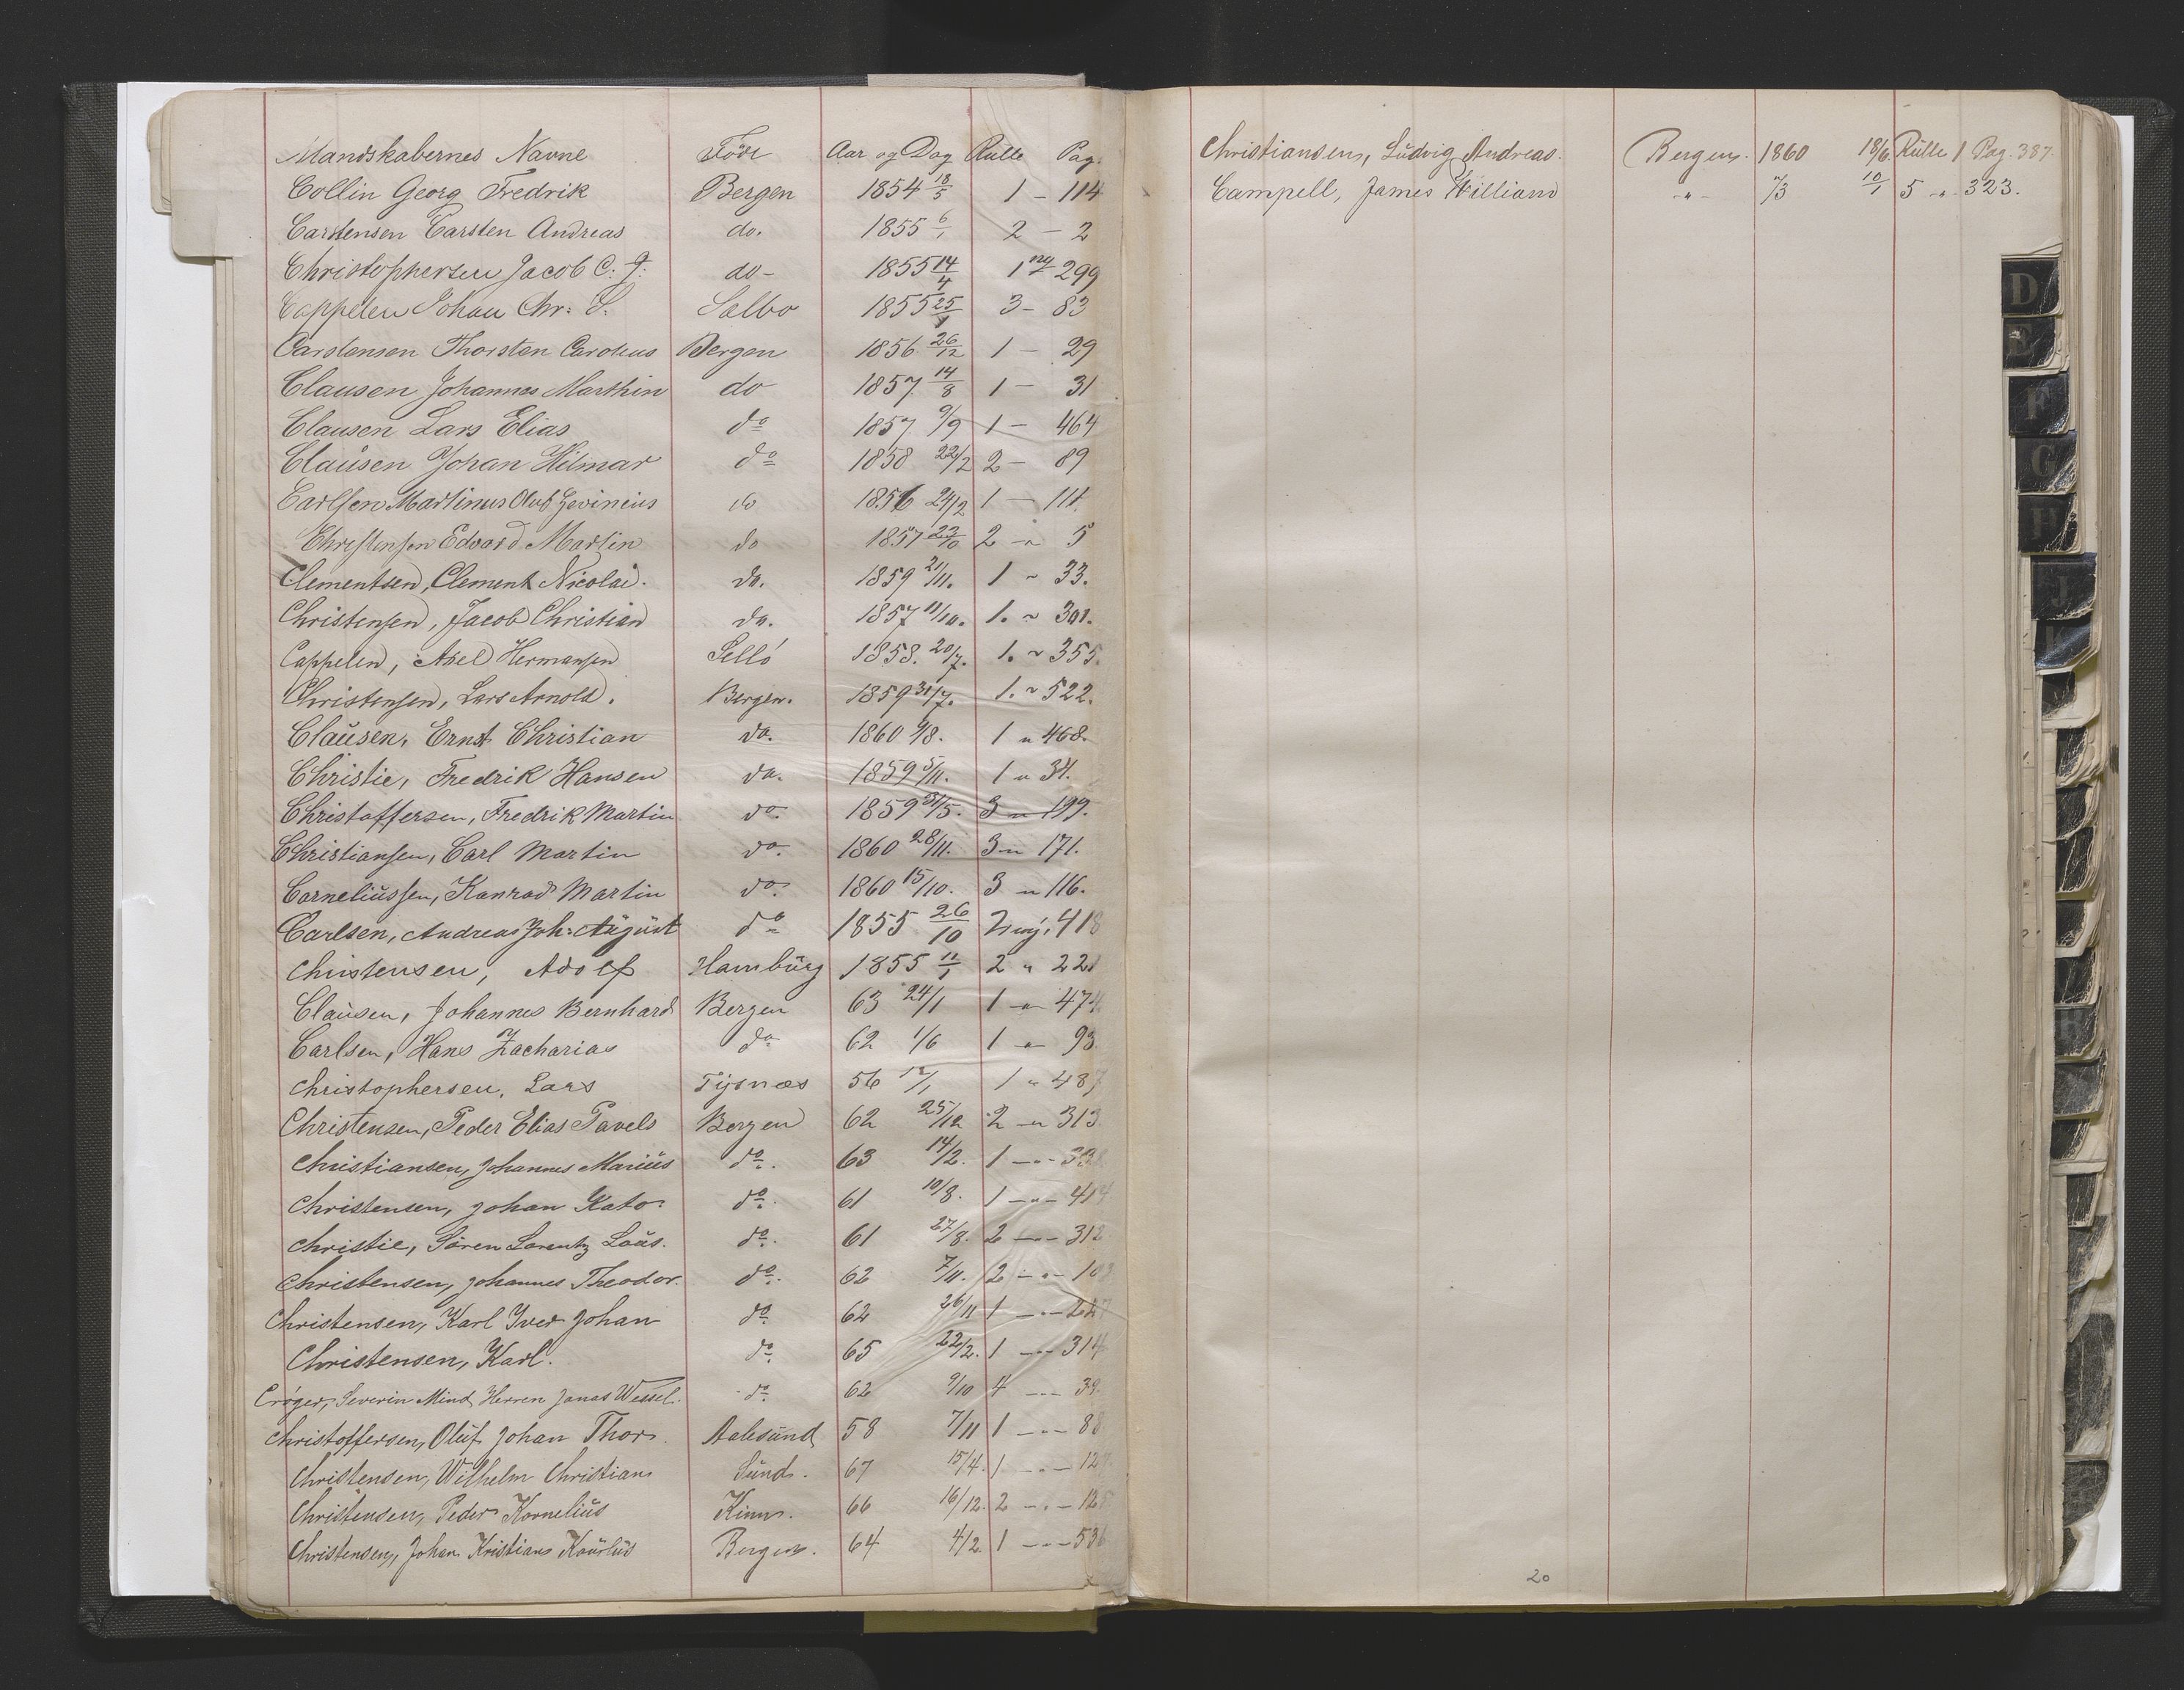 Mandskabernes Navne Föde Aar og Dag Rulle Pag.
Collin Georg Fredrik Bergen 1854 18/5 1 - 114
Carstensen Carsten Andreas do. 1855 6/1 2 - 2
Christophersen Jacob C. J. do- 1855 14/4 1 ny 299
Cappelen Johan Chr. S. Selbo 1855 25/1 3 - 83
Carstensen Thorsten Carolius Bergen 1856 26/12 1 - 29
Clausen Johannes Marthin do 1857 14/8 1 - 31
Clausen Lars Elias do 1857 9/9 1 - 464
Claüsen Johan Hilmar do 1858 22/2 2 - 89
Carlsen Martinus Oluf do 1856 24/2 1 - 111
Christensen Edvard Martin do 1857 22/10 2 " 5
Clementsen, Clement Nicolai. do. 1859 21/11. 1 ~ 33.
Christensen, Jacob Christian do. 1857 11/10. 1. ~ 301.
Cappelen, Axel Hermansen 1858. 20/7. 1. ~ 355.
Christensen, Lars Arnold. Bergen. 1859 31/7. 1. ~ 522.
Claüsen, Ernst Christian do. 1860 9/8. 1 " 468.
Christie, Fredrik Hansen do. 1859 5/11. 1 " 34.
Christoffersen, Fredrik Martin do. 1859 31/5. 3 " 199.
Christiansen, Carl Martin do. 1860 28/11. 3 " 171.
Corneliüssen, Konrad Martin do. 1860 15/10. 3 " 116.
Carlsen, Andreas Joh. Aügüst do 1855 26/10 2 ny. 418
Christensen, Adolf Hambürg 1855 11/1 2 " 22
Claüsen, Johannes Bernhard Bergen 63 24/1 1 " 474
Carlsen, Hans Zacharias do 62 1/6 1 " 93.
Christophersen, Lars Tysnæs 56 12/1 1 " 487
Christensen, Peder Elias Pavels Bergen 62 25/12 2 " 313
Christiansen, Johannes Mariüs do. 63 14/2. 1 -"- 33
Christensen, Johan Kato. do. 61 10/8. 1 -"- 414
Christie, Sören Lorentz do. 61 27/8. 2 -"- 312
Christensen, Johannes Theodor. do. 62 7/11. 2 -"- 10
Christensen, Karl Iver Johan do. 62 26/11 1 -"- 247
Christensen, Karl. do. 65 22/2. 1 -"- 314
Cröger, Severin Mind Herren Jonas Wessel. do. 62 9/10 4 -"- 39.
Christoffersen, Olüf Johan Thor. Aalesünd 58 7/11 1 -"- 88
Christensen, Wilhelm Christian Sünd. 67 15/4. 1 -"- 12
Christensen, Peder Korneliüs Kinn. 66 16/12. 2 -"- 12
Christensen, Johan Kristian Bergen. 64 4/2. 1 -"- 536
Christiansen, Lüdvig Andreas. Bergen. 1860 18/6. Rülle 1 Pag. 387.
Campell, James William -"- 73 10/1 5 -"- 323.
D
E
F
G
H
J
K
R
20